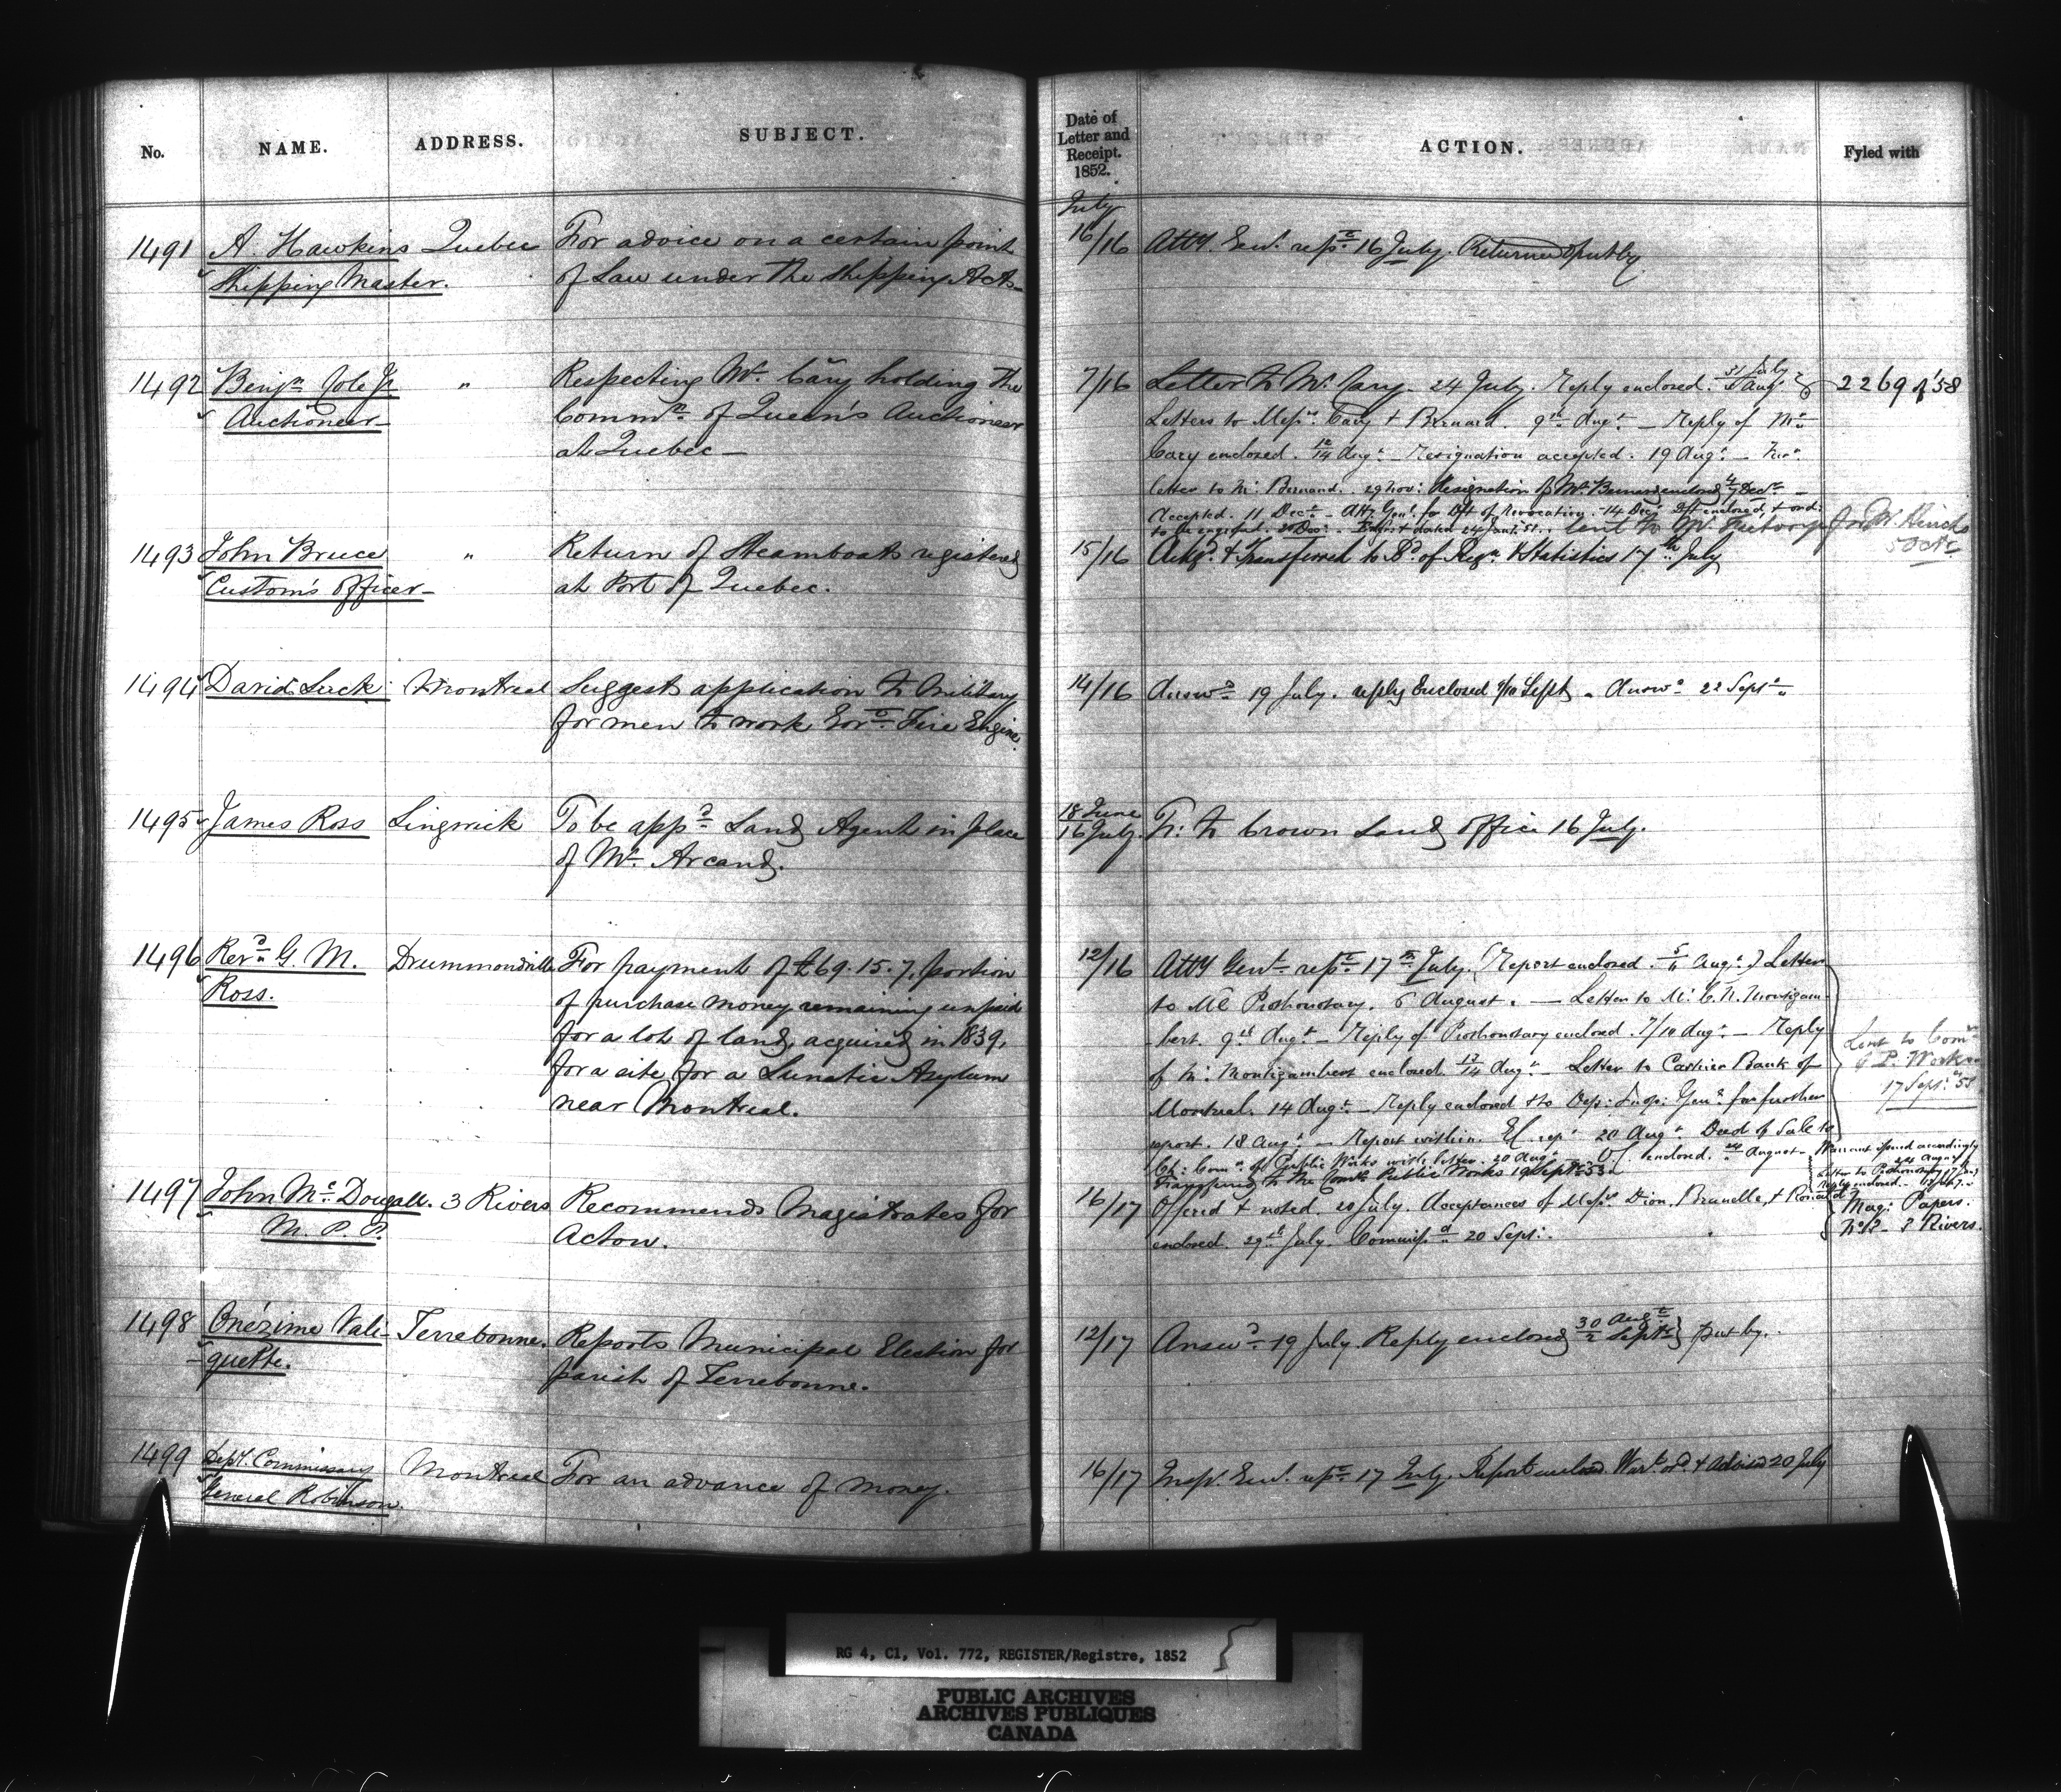 No.
NAME.
ADDRESS.
SUBJECT.
Date of
Letter and
Receipt.
1852.
ACTION.
Fyled with
July
1491
A. Hawkins
Quebec
For advice on a certain point
Shipping Master.
of Law under the Shipping Acts
16/16
Atty. Genl. refd. 16 July. Returned & put by
1492
Benjn. Cole Jr.
"
Respecting Mr. Cary holding the
Auctioneer
Commn. of Queen's Auctioneer
at Quebec
7/16
Letter to Mr. Cary. 24 July. Reply enclosed. 31 July
2269 of '58
Letters to Messrs. Cary & Bernard. 9th Augt. Reply of Mr.
Cary enclosed. 12/14 Augt. Resignation accepted. 19 Augt.
letter to Mr. Bernard. 29 Nov: Resignation of Mr. Bernard enclosed 4/7 Decr.
Accepted. 11 Decr. Atty. Genl. for Dft of Revocation. 14 Decr. Dft enclosed, & ord:
to be engrossed.
Lent to Mr.
for Mr. Hincks
5 Octr.
1493
John Bruce
"
Return of Steamboats registered
Custom's Officer
at Port of Quebec.
15/16
Ackd. & transferred to Bd. of Regn. & Statistics 17th July
1494
David Luck
Montreal
Suggests application to Military
for men to work Govt. Fire Engine.
14/16
Answd. 19 July. reply Enclosed 9/10 Sept. Answd. 22 Septr.
1495
James Ross
Lingwick
To be appd. Land Agent in place
of Mr. Arcand.
18 June
16 July.
Tr: to Crown Land Office 16 July.
1496
Revd. G. M.
Drummondville
For payment of £69.15.7, portion
Ross.
of purchase money remaining unpaid
for a lot of land, acquired in 1839,
for a site for a Lunatic Asylum
near Montreal.
12/16
Atty Genl. refd. 17th July. (Report enclosed. 5/6 Augt.) Letter
to Prothonotary. 6 August. Letter to Mr. Montizam-
bert. 9th Augt. Reply of Prothonotary enclosed. 7/10 Augt. Reply
of Mr. Montizambert enclosed 13/14 Augt. Letter to Cashier Bank of
Montreal. 14 Augt. Reply enclosed & to Dep: Insp: Genl. for further
report. 18 Augt. Report within. Ex. refd. 20 Augt. Deed of Sale to
Ch: Comr. of Public Works with letter. 20 Augt. enclosed. August
Transferred to the Comrs. Public Works 19 Sept. 53
Lent to Comr
of P. Works
17 Sept. 53
Warrant issued accordingly
24 August
Letter to Prothonotary
Reply enclosed
1497
John Mc. Dougall.
3 Rivers
Recommends Magistrates for
M. P. P.
Acton.
16/17
Offered & noted. 20 July. Acceptances of Messrs. Dion, Brunelle, &
enclosed. 29th July. Commissd. 20 Sept:.
Mag: Papers.
No. 3 Rivers.
1498
Onézime Vali-
Terrebonne.
Reports Municipal Election for
-quette.
parish of Terrebonne.
12/17
Answd. 19 July. Reply enclosed 30 Augt./2 Septr. put by.
1499
Depy. Commissary
Montreal
For an advance of money.
General Robinson.
16/17
Inspr. Genl. refd. 17 July. Report enclosed. Wart. ord. & advised 20 July
RG 4, C1, Vol. 772, REGISTER/Registre, 1852
PUBLIC ARCHIVES
ARCHIVES PUBLIQUES
CANADA